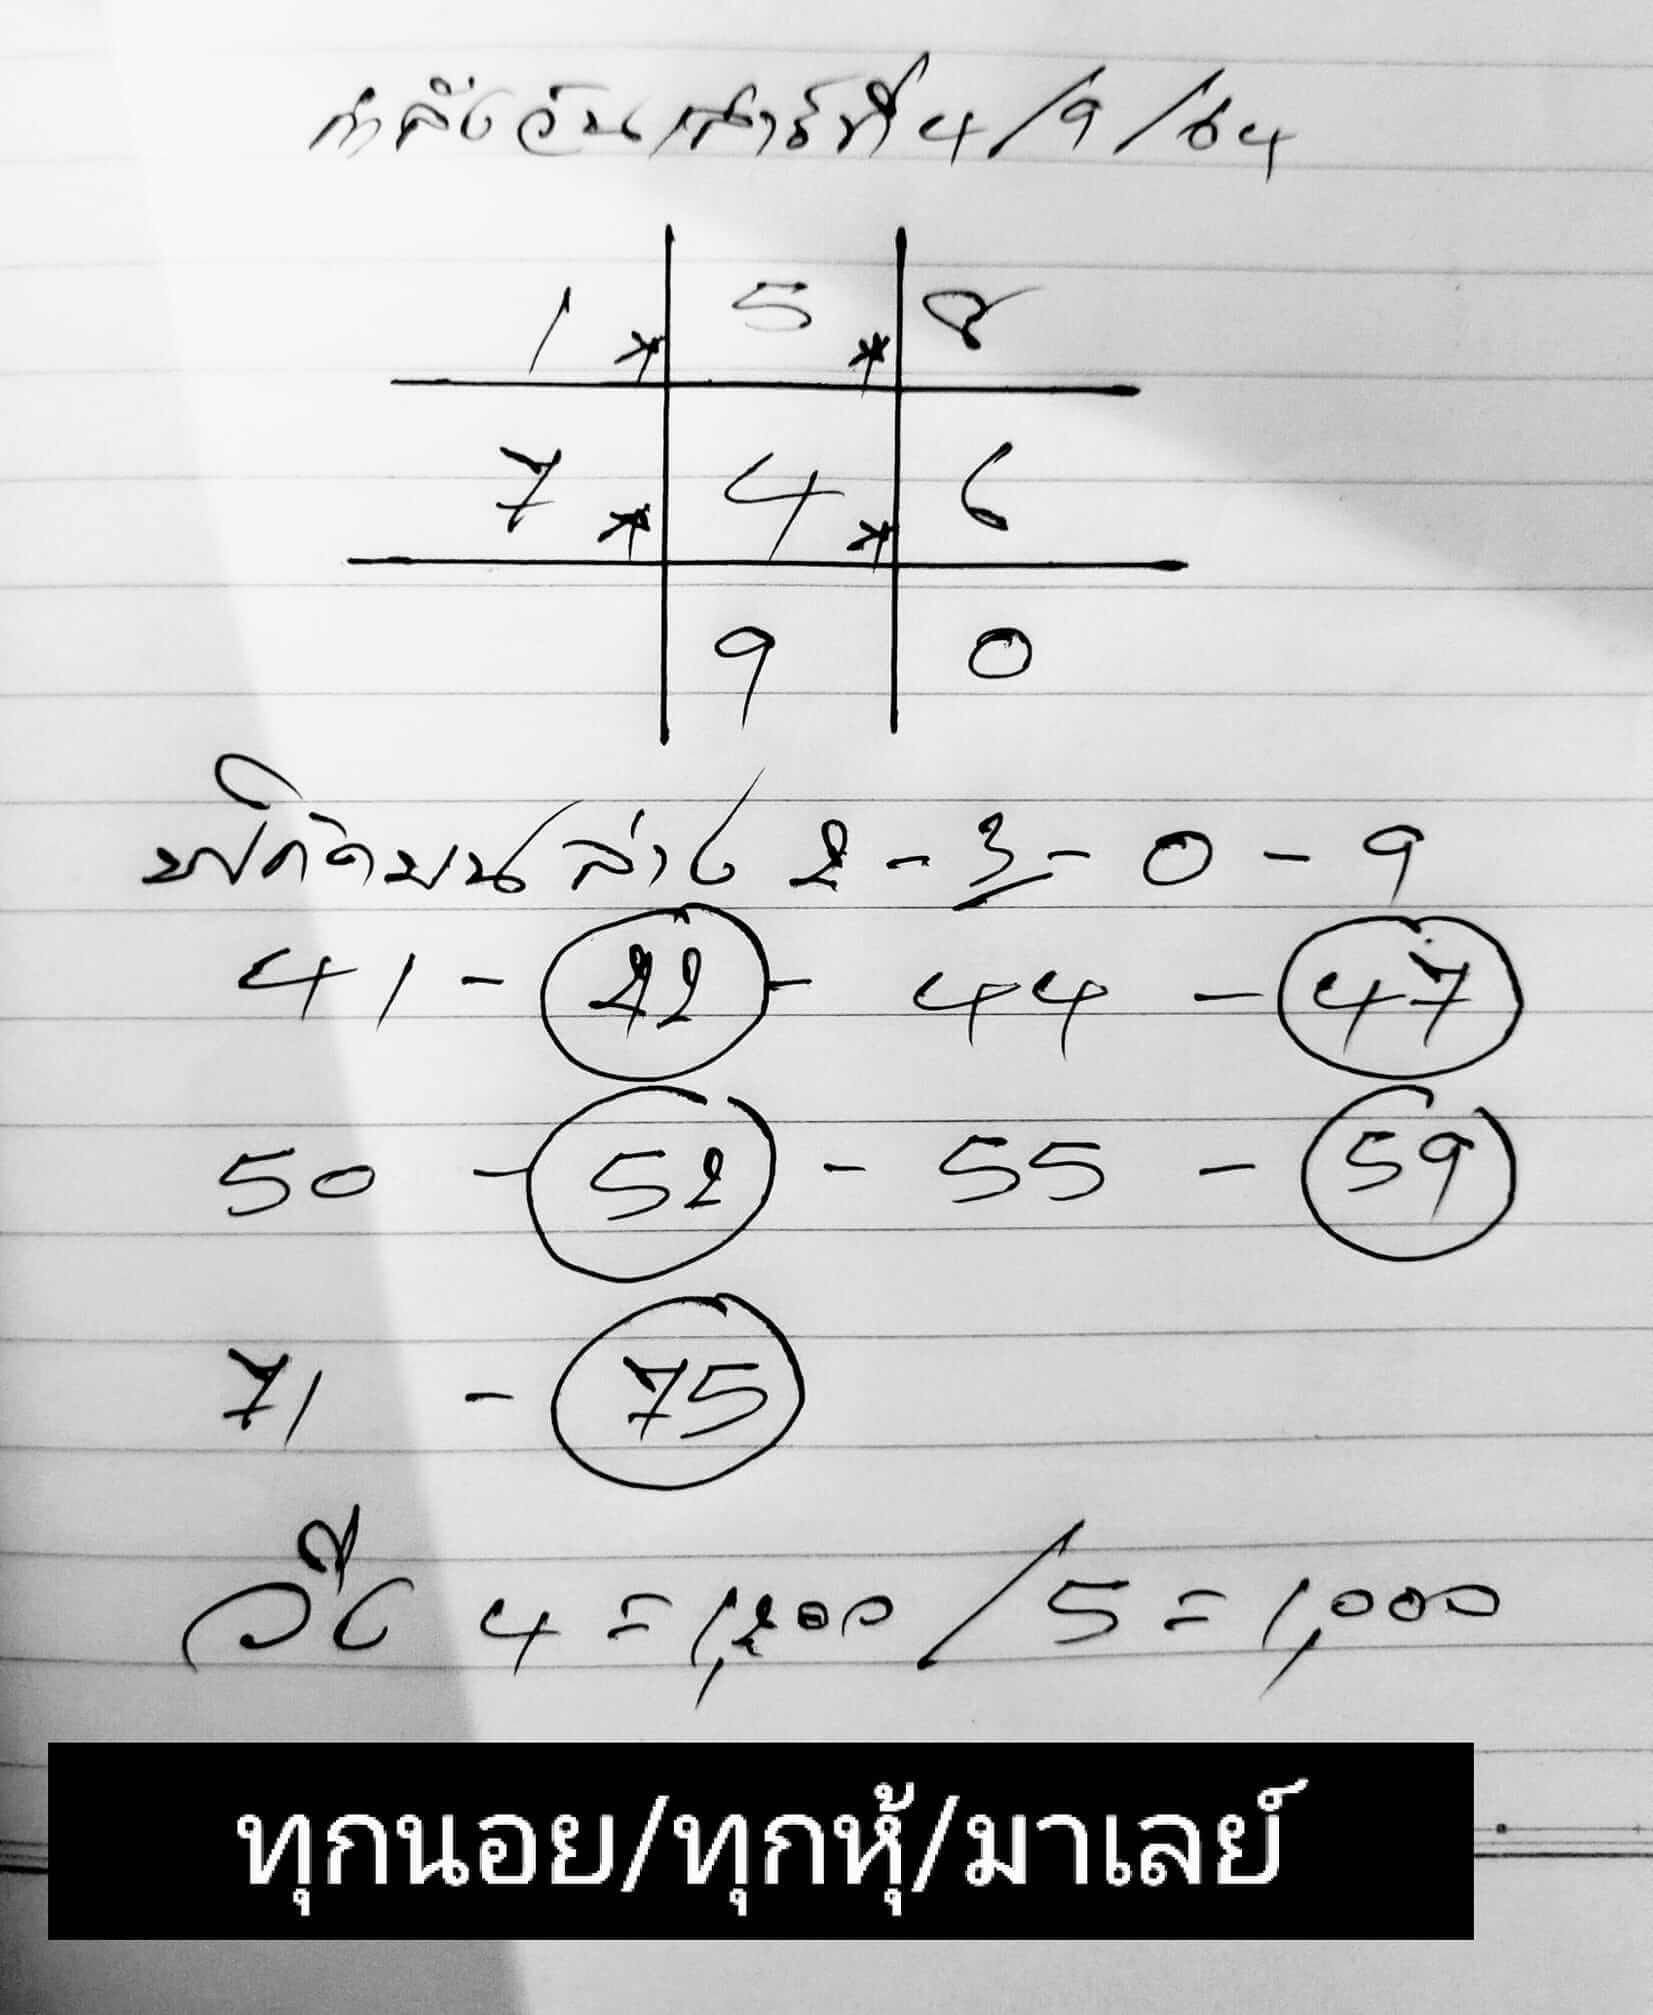 กำลังวันเสาร์ที่ 4/9/64
1 * 5 * 8
7 * 4 * 6
9 0
พิกัดบนล่าง 2 - 3 - 0 - 9
41 - 42 - 44 - 47
50 - 52 - 55 - 59
71 - 75
วิ่ง 4 = 1,200 / 5 = 1,000
ทุกนอย/ทุกหุ้/มาเลย์